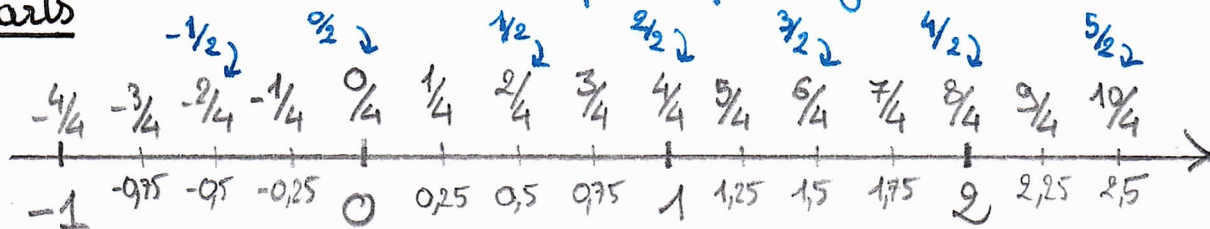 arts
-1/2 0/2 1/2 2/2 3/2 4/2 5/2
-4/4 -3/4 -2/4 -1/4 0/4 1/4 2/4 3/4 4/4 5/4 6/4 7/4 8/4 9/4 10/4
-1 -0,75 -0,5 -0,25 0 0,25 0,5 0,75 1 1,25 1,5 1,75 2 2,25 2,5